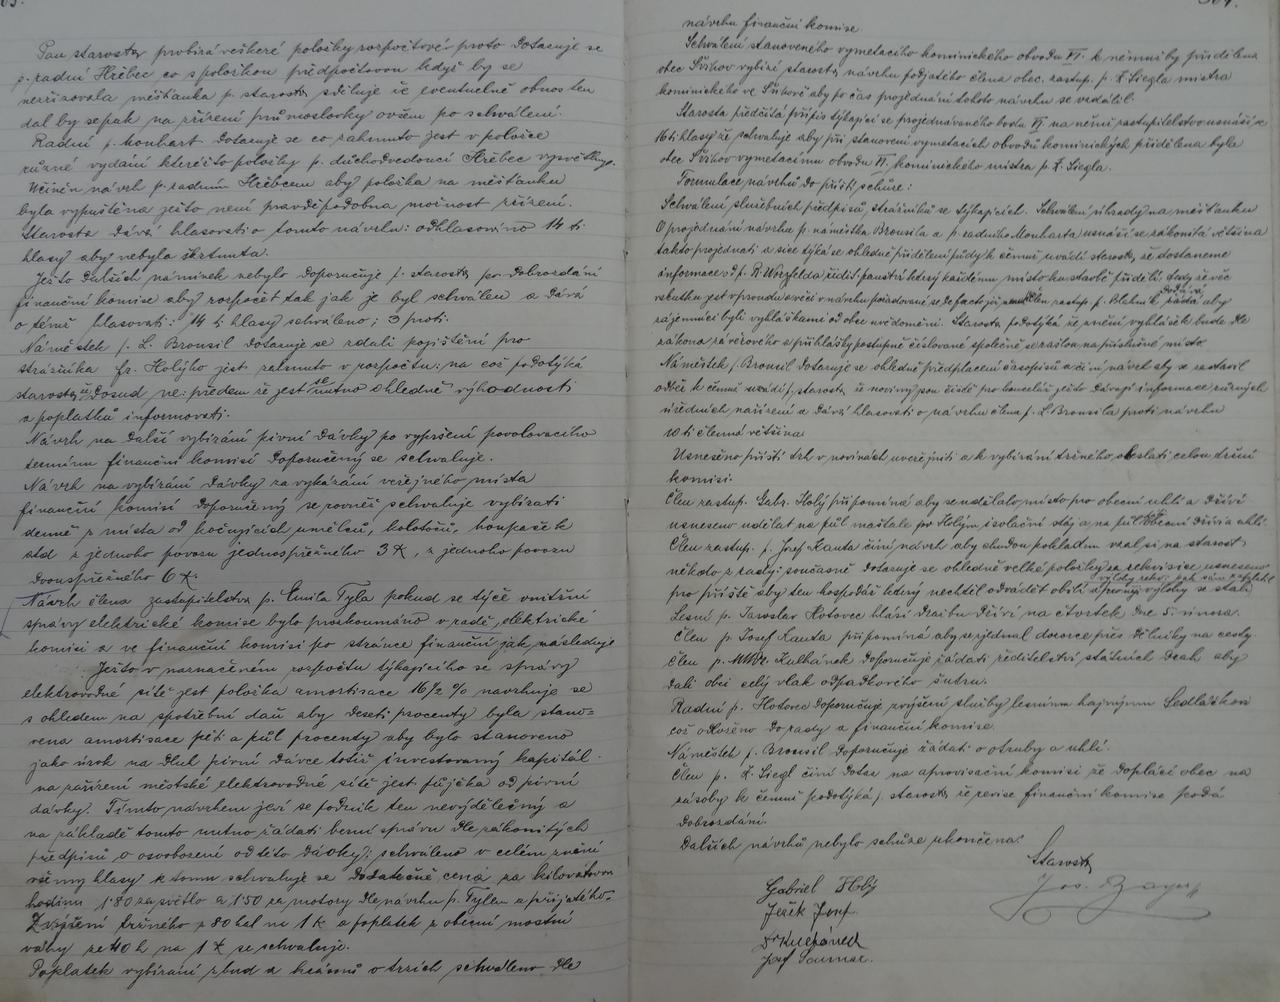 Pan starosta probírá veškeré položky rozpočtové proto dotazuje se
p. radní Hřebec co s položkou předpočtovou když by se
nezřizovala měšťanka p. starosta sděluje že eventuelně obnos ten
dal by se pak na zřízení průmyslovky ovšem po schválení.
Radní p. Monhart dotazuje se co zahrnuto jest v položce
různé vydání kteréžto položky p. důchodvedoucí Hřebec vysvětluje.
Učiněn návrh p. radním Hřebcem aby položka na měšťanku
byla vypuštěna ježto není pravděpodobna možnost zřízení.
Starosta dává hlasovati o tomto návrhu: odhlasováno 14 ti
hlasy aby nebyla škrtnuta.
Ježto dalších námitek nebylo doporučuje p. starosta po dobrozdání
finanční komise aby rozpočet tak jak je byl schválen a dává
o témž hlasovati: 14 ti hlasy schváleno; 3 proti.
Náměstek p. L. Brousil dotazuje se zdali pojištění pro
strážníka Fr. Holýho jest zahrnuto v rozpočtu: na což podotýká
starosta že dosud ne: předem že jest se nutno ohledně výhodnosti
a poplatků informovati.
Návrh na další vybírání pivní dávky po vypršení povolovacího
termínu finanční komisí doporučený se schvaluje.
Návrh na vybírání dávky za vykázání veřejného místa
finanční komisí doporučený se rovněž schvaluje vybírati
denně z místa od kočujících umělců, kolotočů, houpaček
atd z jednoho povozu jednospřežného 3 K, z jednoho povozu
dvouspřežného 6 K.
Návrh člena zastupitelstva p. Emila Tyla pokud se týče vnitřní
správy elektrické komise bylo prozkoumáno v radě, elektrické
komisi a ve finanční komisi po stránce finanční jak následuje
Ježto v naznačeném rozpočtu týkajícího se správy
elektrovodné sítě jest položka amortisace 16 1/2 % navrhuje se
s ohledem na spotřební daň aby deseti procenty byla stano=
vena amortisace pěti a půl procenty aby bylo stanoveno
jako úrok na dluh pivní dávce totiž investovaný kapitál
na zařízení městské elektrovodné sítě jest půjčka od pivní
dávky. Tímto návrhem jeví se podnik ten nevýdělečný a
na základě tomuto nutno žádati berní správu dle zákonitých
předpisů o osvobození od této dávky; schváleno v celém znění
všemi hlasy k tomu schvaluje se dodatečně cena za kilovatovou
hodinu 1·80 za světlo a 1·50 za motory dle návrhu p. Tyla a přijatého.
Zvýšení tržného z 80 hal na 1 K a poplatek z obecní mostní
váhy ze 40 h na 1 K se schvaluje.
Poplatek vybírání z bud a krámů o trzích schváleno dle
návrhu finanční komise.
Schválení stanoveného vymetacího kominického obvodu VI. k němuž by přidělena
obec Svikov vybízí starosta návrhu podjatého člena obec. zastup. p. F. Siegla mistra
kominického ve aby po čas projednání tohoto návrhu se vzdálil.
Starosta předčítá přípis týkající se projednávaného bodu VI. na němž zastupitelstvo usnáší se
16 ti hlasy že schvaluje aby při stanovení vymetacích obvodů kominických přidělena byla
obec vymetacímu obvodu VI. kominického mistra p. F. Siegla.
Formulace návrhů do příští schůze:
Schválení služebních předpisů, strážníků se týkajících. Schválení úhrady na měšťanku
O projednání návrhu p. náměstka Brousila a p. radního Monharta usnáší se zákonitá většina
takto projednati a sice týká se ohledně přidělení půdy k čemuž uvádí starosta, že dostaneme
informace
zájemníci byli vyhláškami od obce uvědoměni. Starosta podotýká že znění vyhlášek bude dle
zákona za se přihlášky postupně číslované společně se zašlou na příslušné místo
Náměstek p. Brousil dotazuje se ohledně předplacení časopisů a činí návrh aby se zastavil
odběr k čemuž uvádí p. starosta že noviny jsou čistě pro kancelář ježto dávají informace různých
úředních nařízení a dává hlasovati o návrhu člena p. L. Brousila proti návrhu
10 ti členná většina
Usneseno příští trh v novinách uveřejniti a k vybírání tržného obeslati celou tržní
komisi.
Člen zastup. Gabr. Holý připomíná aby se udělalo místo pro obecní uhlí a dříví
usneseno udělat na půl maštale pro Holým isolační stáj a na půl obecní dříví a uhlí.
Člen zastup. p. Josef Kauta činí návrh aby chudou pokladnu vzal si na starost
někdo z rady: současně dotazuje se ohledně velké položky za rekvisice usneseno
pro příště aby ten hospodář který nechtěl odvádět obilí
Lesní p. Jaroslav Hotovec hlásí dražbu dříví na čtvrtek dne 5. února.
Člen p. Josef Kauta připomíná aby se zjednal dozorce přes dělníky na cesty.
Člen p. MUDr. Kulhánek doporučuje žádati ředitelství státních drah aby
dali obci celý vlak odpadkového šutru.
Radní p. Hotovec doporučuje zvýšení služby lesnímu hajnýmu Sedláčkovi
což odloženo do rady a finanční komise.
Náměstek p. Brousil doporučuje žádati o otruby a uhlí.
Člen p. F. Siegl činí dotaz na aprovisační komisi že doplácí obec na
zásoby k čemuž podotýká p. starosta že revise finanční komise podá
dobrozdání.
Dalších návrhů nebylo schůze ukončena.
Starosta
Gabriel Holý
Ježek Josef
Dr Kulhánek
Josef